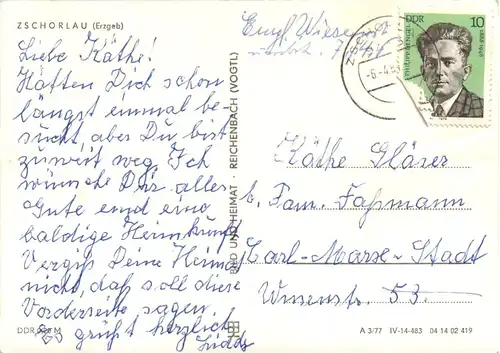 ZSCHORLAU (Erzgeb)
Liebe Käthe!
Hätten Dich schon
längst einmal be-
sucht, aber Du bist
zu weit weg. Ich
wünsche Dir alles
Gute und eine
baldige Heimkunft.
Vergiß Deine Heimat
nicht, daß soll diese
Vorderseite sagen.
Es grüßt herzlich
DDR M
BILD UND HEIMAT · REICHENBACH (VOGTL)
DDR 10
Käthe Gläser
b. Fam. Faßmann
Karl-Marx-Stadt
53.
A 3/77 IV-14-483 04 14 02 419